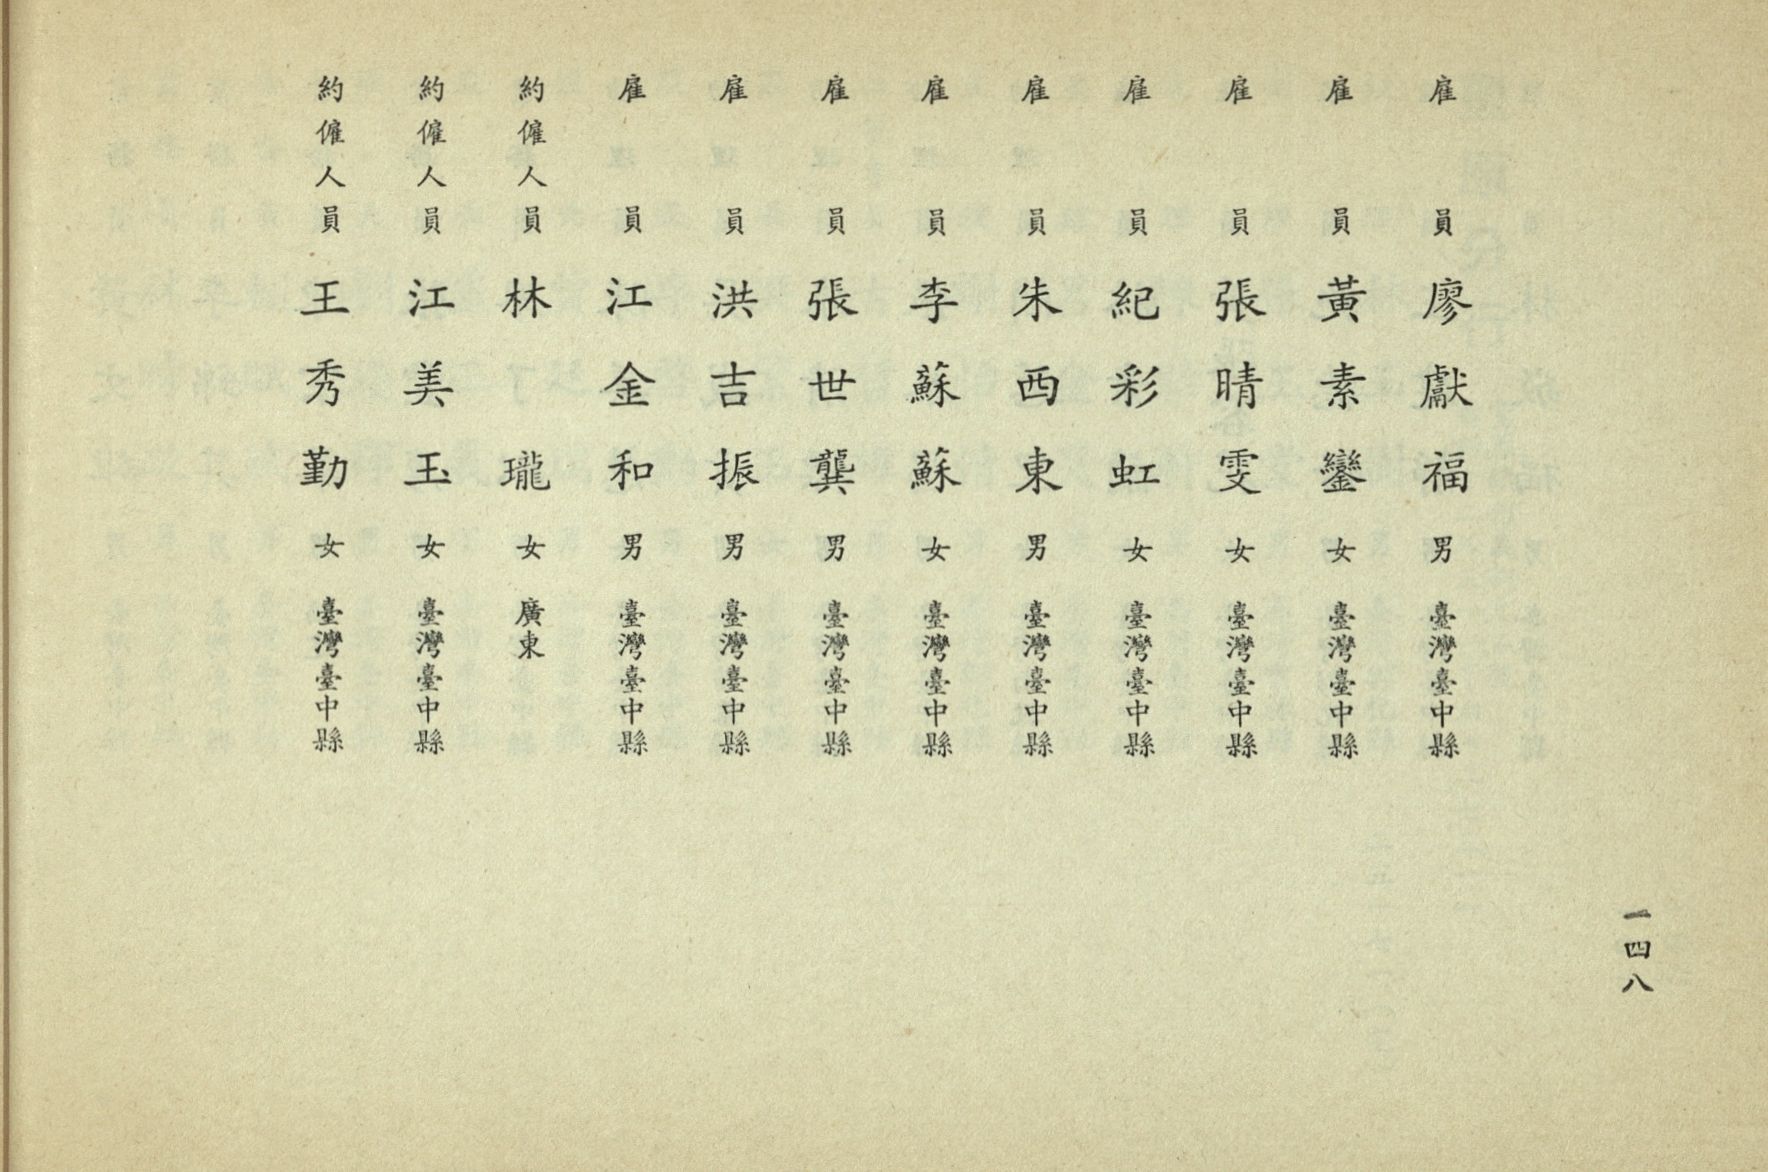 一四八
雇員 廖獻福 男 臺灣臺中縣
雇員 黃素鑾 女 臺灣臺中縣
雇員 張晴雯 女 臺灣臺中縣
雇員 紀彩虹 女 臺灣臺中縣
雇員 朱西東 男 臺灣臺中縣
雇員 李蘇蘇 女 臺灣臺中縣
雇員 張世龔 男 臺灣臺中縣
雇員 洪吉振 男 臺灣臺中縣
雇員 江金和 男 臺灣臺中縣
約僱人員 林瓏 女 廣東
約僱人員 江美玉 女 臺灣臺中縣
約僱人員 王秀勤 女 臺灣臺中縣